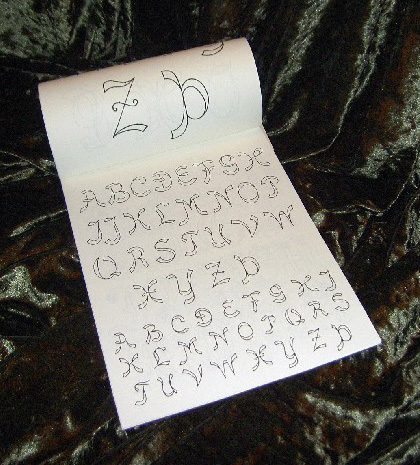 Z Þ
A B C D E F G H
I J K L M N O P
Q R S T U V W
X Y Z Þ
A B C D E F G H I J
K L M N O P Q R S
T U V W X Y Z Þ